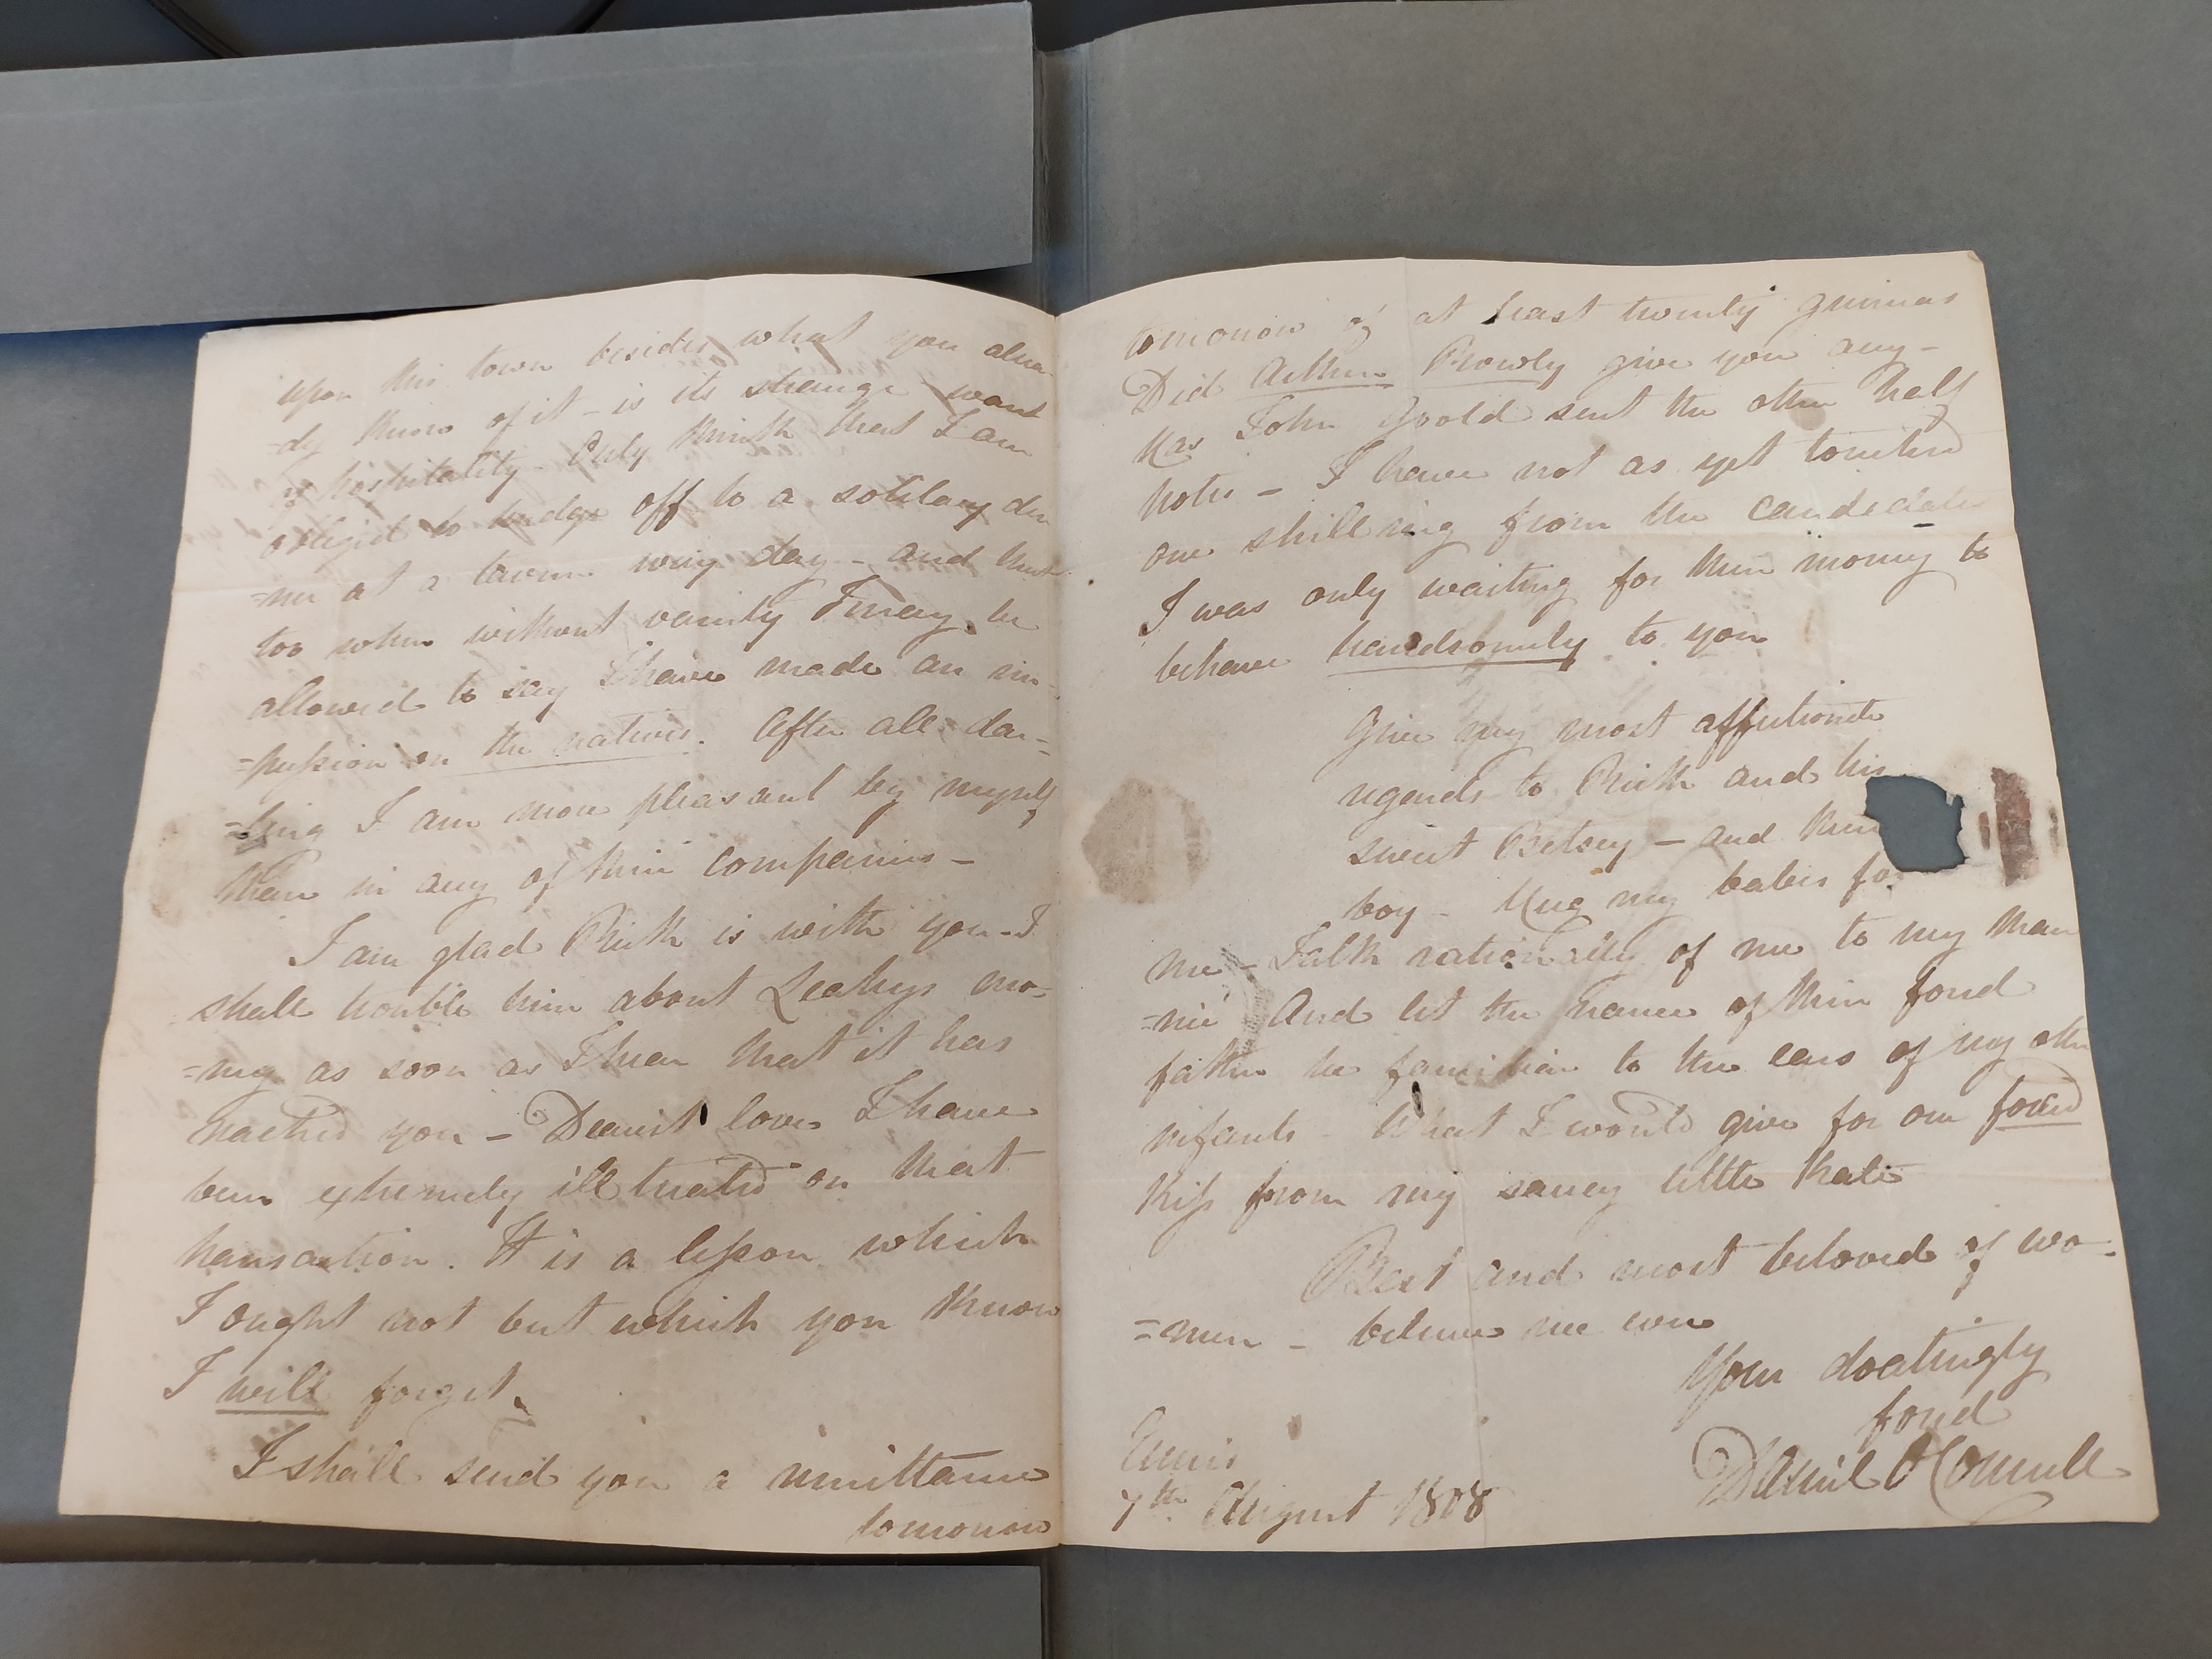 upon this town besides what you alrea-
=dy know of it - is its strange want
of hospitality. Only think that I am
obliged to trudge off to a solitary din
=ner at a tavern every day - and that
too when without vanity I may be
allowed to say I have made an im=
=pression on the natives. After all dar=
=ling I am more pleasant by myself
than in any of their companies -
I am glad Rick is with you - I
shall trouble him about Leahys mo=
=ney as soon as I hear that it has
reached you - Dearest love I have
been extremely ill treated on that
transaction. It is a lesson which
I ought not but which you know
I will forget.
I shall send you a remittance
tomorrow
tomorrow of at least twenty guineas
Did Arthur Prowdy give you any -
Has John Goold sent the other half
notes - I have not as yet touched
one shilling from the candidates
I was only waiting for their money to
behave handsomely to you
Give my most affectionate
regards to Rick and his
sweet Betsey - and their
boy - Hug my babes fo
me - Talk rationally of me to my Mau
=rice And let the name of their fond
father be familiar to the ears of my other
infants - What I would give for one fond
kiss from my saucy little Kate
Best and most beloved of wo=
=men - believe me ever
Your doatingly
fond
Daniel O'Connell
Ennis
7th. August 1808